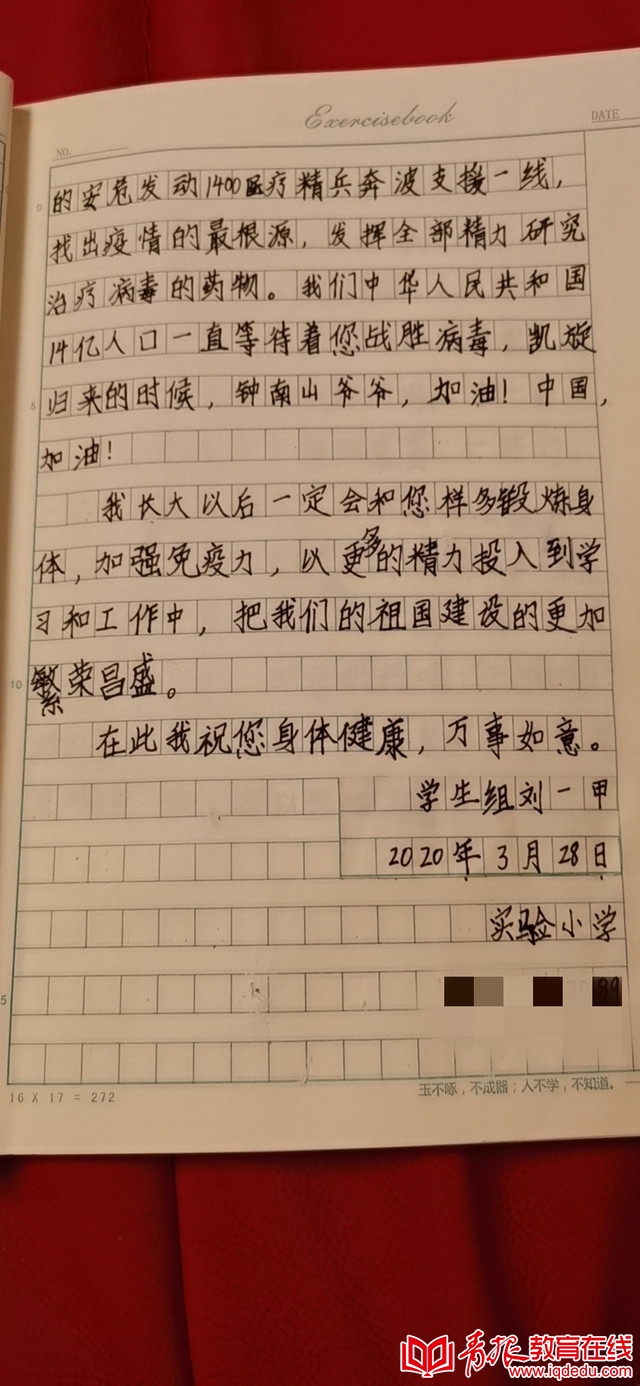 Exercisebook
NO.
DATE
的安危发动1400医疗精兵奔波支援一线，
找出疫情的最根源，发挥全部精力研究
治疗病毒的药物。我们中华人民共和国
14亿人口一直等待着您战胜病毒，凯旋
5
归来的时候，钟南山爷爷，加油！中国，
加油！
我长大以后一定会和您样多锻炼身
体，加强免疫力，以更多的精力投入到学
习和工作中，把我们的祖国建设的更加
10
繁荣昌盛。
在此我祝您身体健康，万事如意。
学生组刘一甲
2020年3月28日
实验小学
99
5
16 X 17 = 272
玉不啄，不成器；人不学，不知道。
青报教育在线
www.iqdedu.com